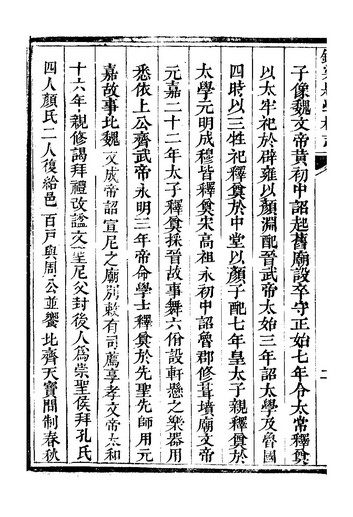 子像魏文帝黄初中詔起舊廟設卒守正始七年令太常釋奠
以太牢祀於辟雍以顏淵配晉武帝太始三年詔太學及魯國
四時以三牲祀釋奠於中堂以顏子配七年皇太子親釋奠於
太學元明成穆皆釋奠宋高祖永初中詔魯郡修葺墳廟文帝
元嘉二十二年太子釋奠採晉故事舞六佾設軒懸之樂器用
悉依上公齊武帝永明三年帝命學士釋奠於先聖先師用元
嘉故事北魏文成帝詔宣尼之廟別敕有司薦享孝文帝太和
十六年親修謁拜禮改諡文聖尼父封後人爲崇聖侯拜孔氏
四人顏氏二人復給邑百戸與周公並饗北齊天寶間制春秋
二